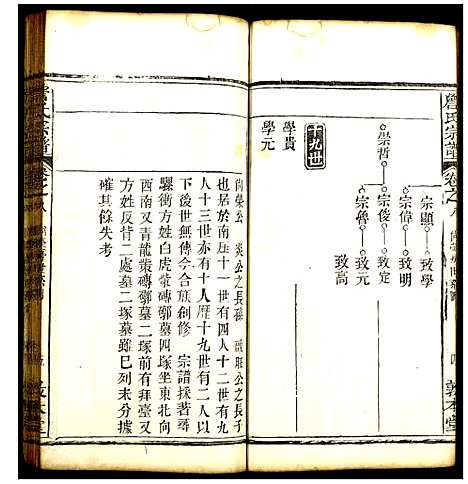 詹氏宗譜
卷之八
四
敦本堂
宗顯 致學
崇哲 宗偉 致明
宗俊 致定
宗魯 致元
致高
十九世
學貴
學元
尚榮公 炎公之長孫 旺公之長子
也居於南 十一世有四人十二世有九
人十三世亦有十人歷十九世有二人以
下後世無傳今合族創修 宗譜採著尋
驪衝方姓白虎業磚鄣墓四塚坐東北向
西南又青龍業磚鄣墓二塚前有拜臺又
方姓反背一處墓二塚墓雖已列未分據
確其餘失考
詹氏宗譜
敦本堂